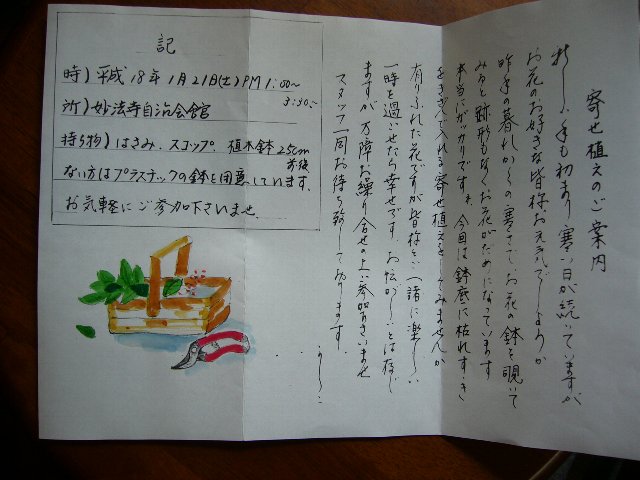 寄せ植えのご案内
新しい年も初まり寒い日が続いていますが
お花のお好きな皆様お元気でしょうか
昨年の暮れからの寒さで、お花の鉢を覗いて
みると跡形もなくお花がだめになっています
本当にガッカリですネ。今回は鉢底に枯れすすき
をきざんで入れる寄せ植えをしてみませんか
有りふれた花ですが皆様と一諸に楽しい
一時を過ごせたら幸せです。お忙がしいとは存じ
ますが万障お繰り合せの上ご参加下さいませ
スタッフ一同お待ち致しております。
記
時) 平成18年1月21日(土)PM1:00〜
3:30
所) 妙法寺自治会館
持ち物) はさみ、スコップ、植木鉢25cm
前後
ない方はプラスチックの鉢を用意しています。
お気軽にご参加下さいませ。